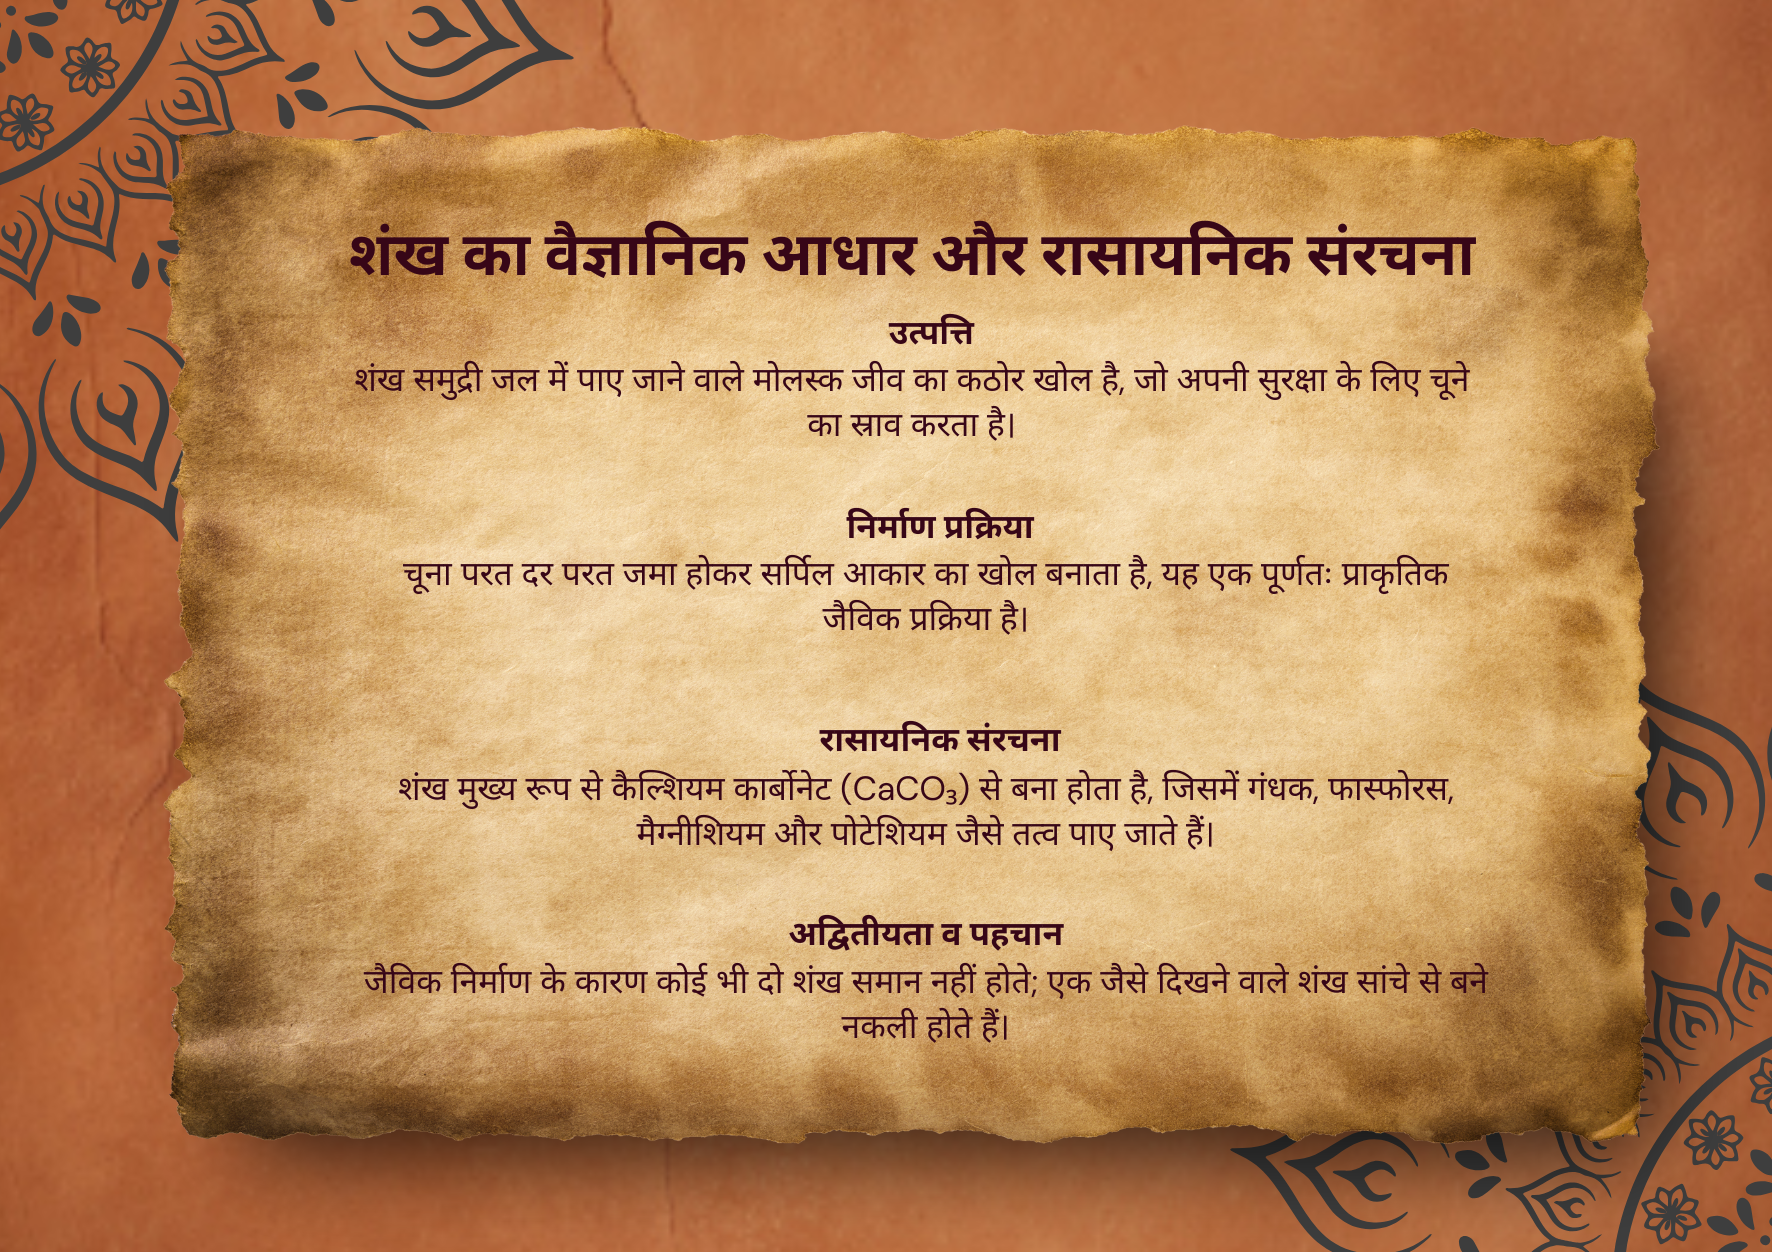 शंख का वैज्ञानिक आधार और रासायनिक संरचना
उत्पत्ति
शंख समुद्री जल में पाए जाने वाले मोलस्क जीव का कठोर खोल है, जो अपनी सुरक्षा के लिए चूने
का स्राव करता है।
निर्माण प्रक्रिया
चूना परत दर परत जमा होकर सर्पिल आकार का खोल बनाता है, यह एक पूर्णतः प्राकृतिक
जैविक प्रक्रिया है।
रासायनिक संरचना
शंख मुख्य रूप से कैल्शियम कार्बोनेट (CaCO₃) से बना होता है, जिसमें गंधक, फास्फोरस,
मैग्नीशियम और पोटेशियम जैसे तत्व पाए जाते हैं।
अद्वितीयता व पहचान
जैविक निर्माण के कारण कोई भी दो शंख समान नहीं होते; एक जैसे दिखने वाले शंख सांचे से बने
नकली होते हैं।